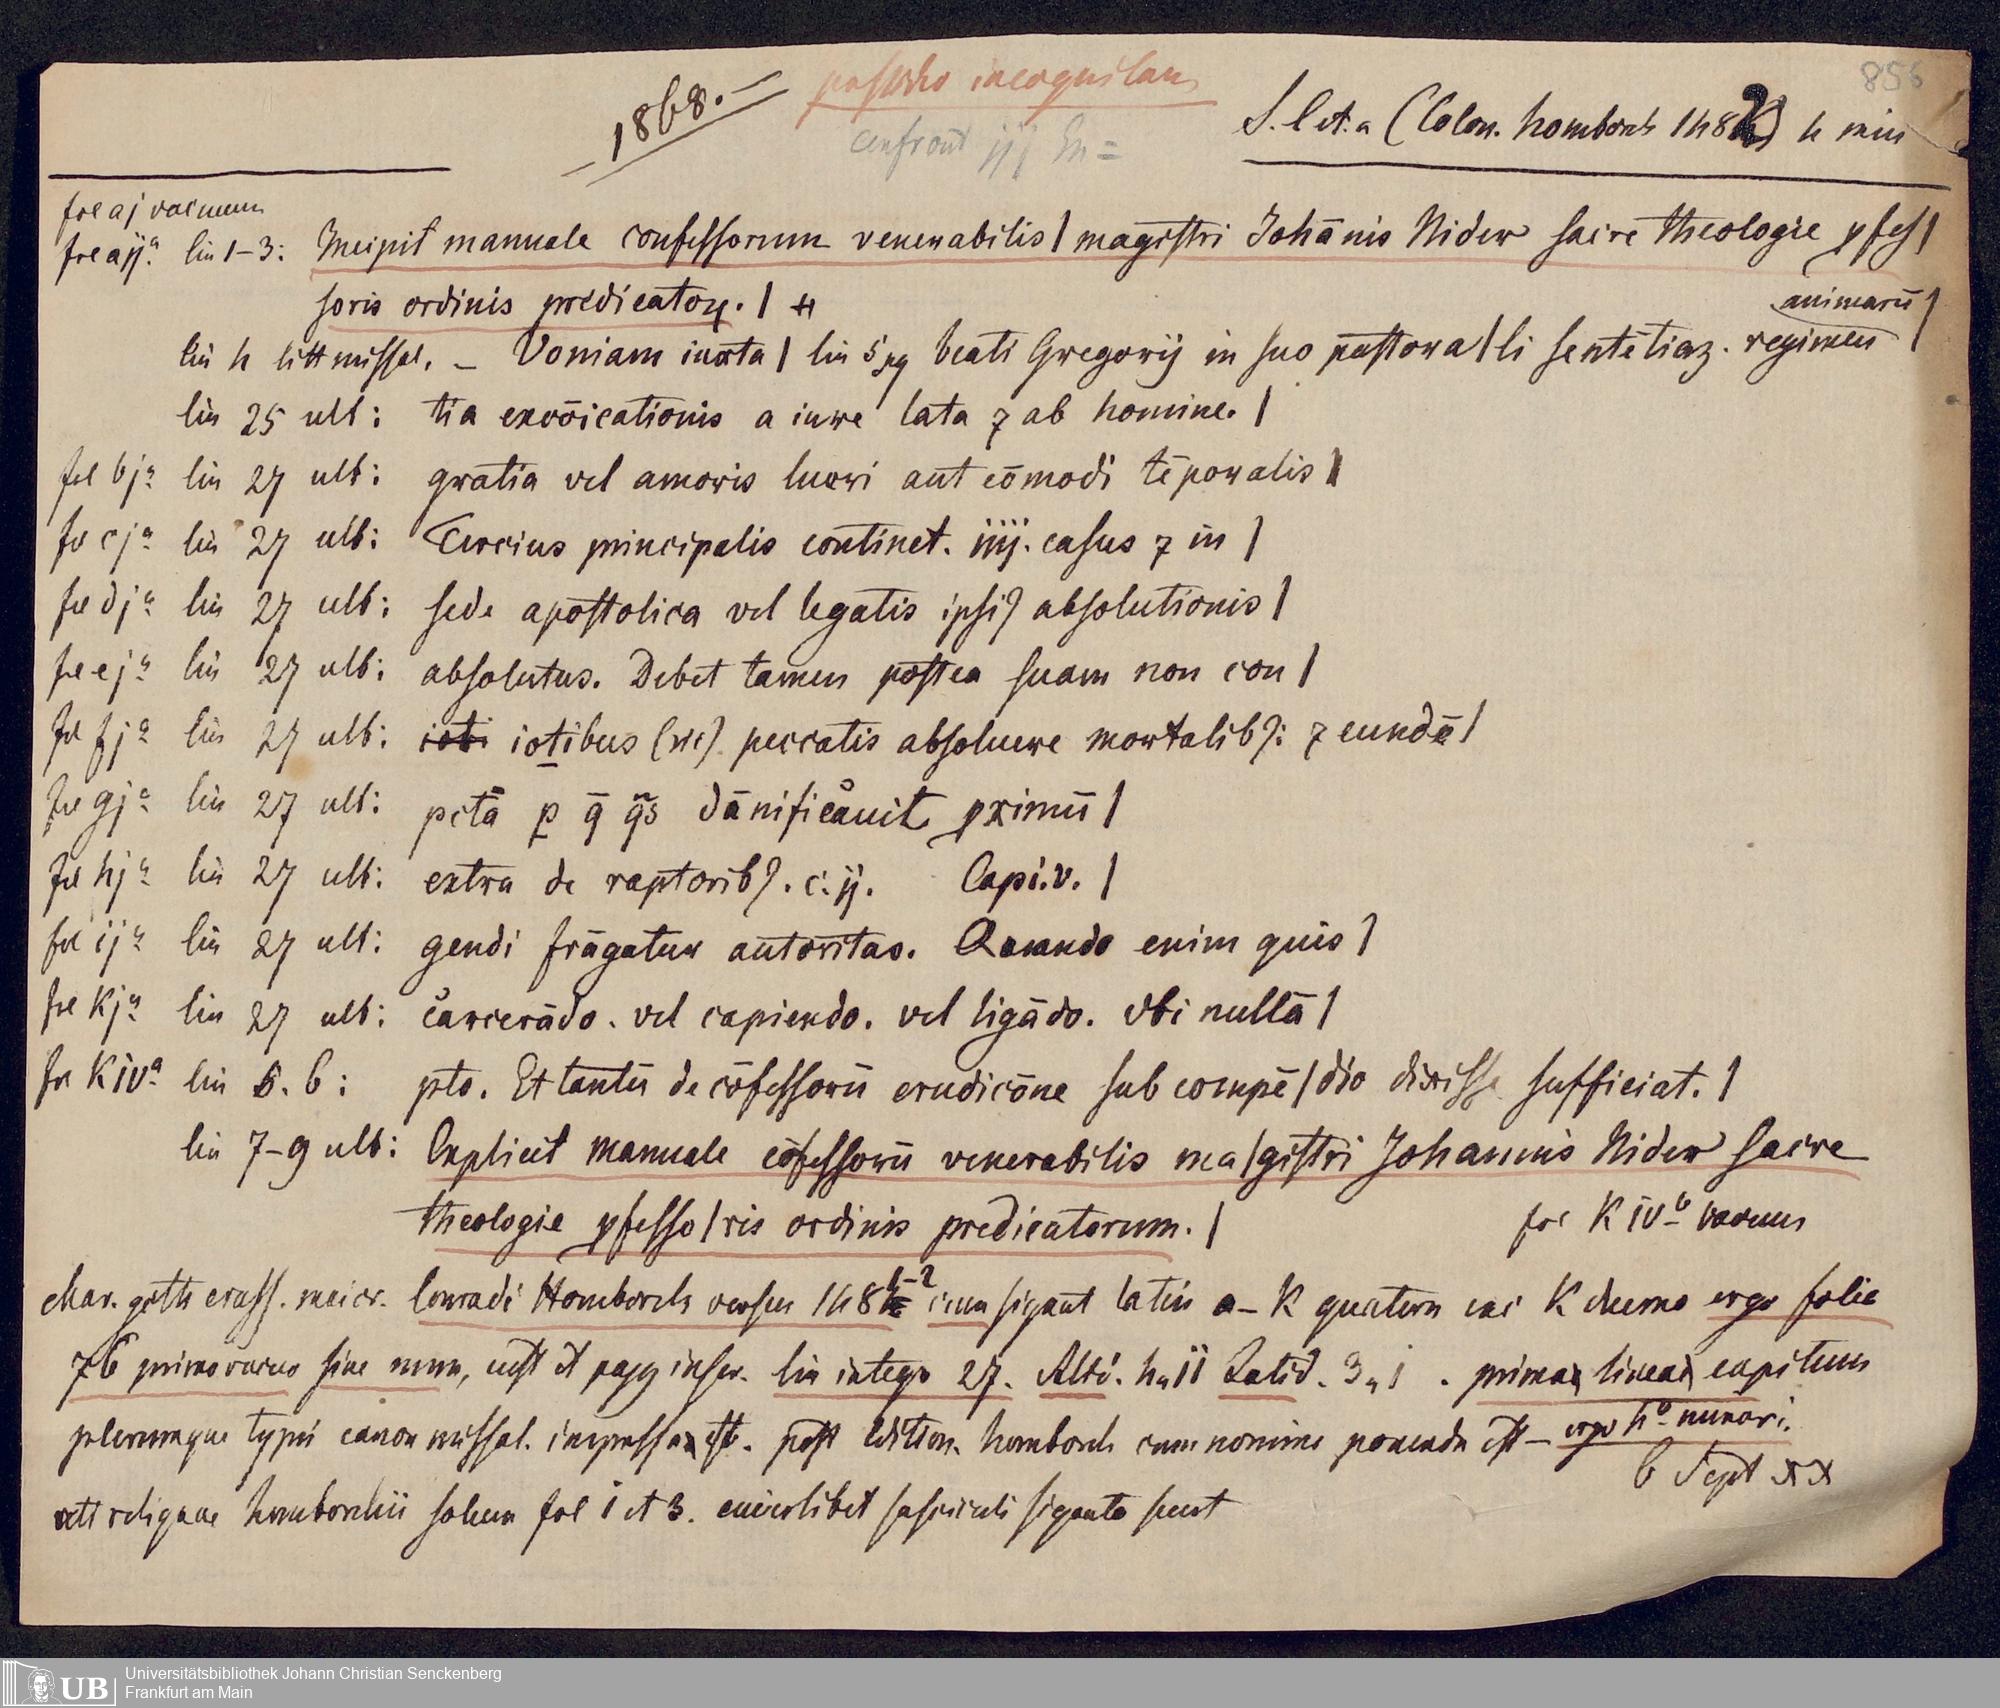 856
1868.—
confront iij En =
S. l et. a (Colon. homborch 1482) 4 min
fol aj vacuum
fol aij a lin 1-3: Incipit manuale confessorum venerabilis | magistri Johānis Nider sacre theologie ꝓfes|
soris ordinis predicatoꝝ. |
animarū |
lin 4 litt missal. – Voniam iuxta | lin 5 beati Gregorij in suo pastora|li sentētiaz. regimen
lin 25 ult: tia exc̄ōicationis a iure lata ⁊ ab homine. |
fol bj a lin 27 ult: gratia vel amoris lucri aut cōmodi tēporalis |
fol cj a lin 27 ult: Tercius principalis continet. iiij. casus ⁊ in |
fol dj a lin 27 ult: sede apostolica vel legatis ipsiꝰ absolutionis |
fol ej a lin 27 ult: absolutus. Debet tamen postea suam non con |
fol fj a lin 27 ult: iotibus (sic) peccatis absoluere mortalibꝰ: ⁊ eundē |
fol gj a lin 27 ult: pctā ꝑ q̄ q̄s dānificauit ꝓximū |
fol hj a lin 27 ult: extra de raptoribꝰ. c. ij. Capi. v. |
fol ij a lin 27 ult: gendi frāgatur autoritas. Quando enim quis |
fol kj a lin 27 ult: carcerādo. vel capiendo. vel ligādo. vbi nullā |
fol k iv a lin 5. 6: pto. Et tantū de cōfessorū erudicōne sub compē|dio dixisse sufficiat. |
lin 7-9 ult: Explicit manuale cōfessorū venerabilis ma|gistri Johannis Nider sacre
theologie ꝓfesso|ris ordinis predicatorum. | fol k iv b vacuum
char. goth crass. maior. Conradi Homborch 148 1-2 cum signat latin a – k quatern k duerno ergo folia
76 primo vacuo sine num, cust et pagg inscr. lin integr 27. Alti. 4„11 Latid. 3„1. prima linea capitum
plerumque typis canon missal. impressa est. post edition. homborch cum nomine ponenda est – ergo 4o numeri.
6 Sept XX
reliquae homborchii solum fol 1 et 3. cuiuslibet fasciculi signata sunt
UB
Universitätsbibliothek Johann Christian Senckenberg
Frankfurt am Main